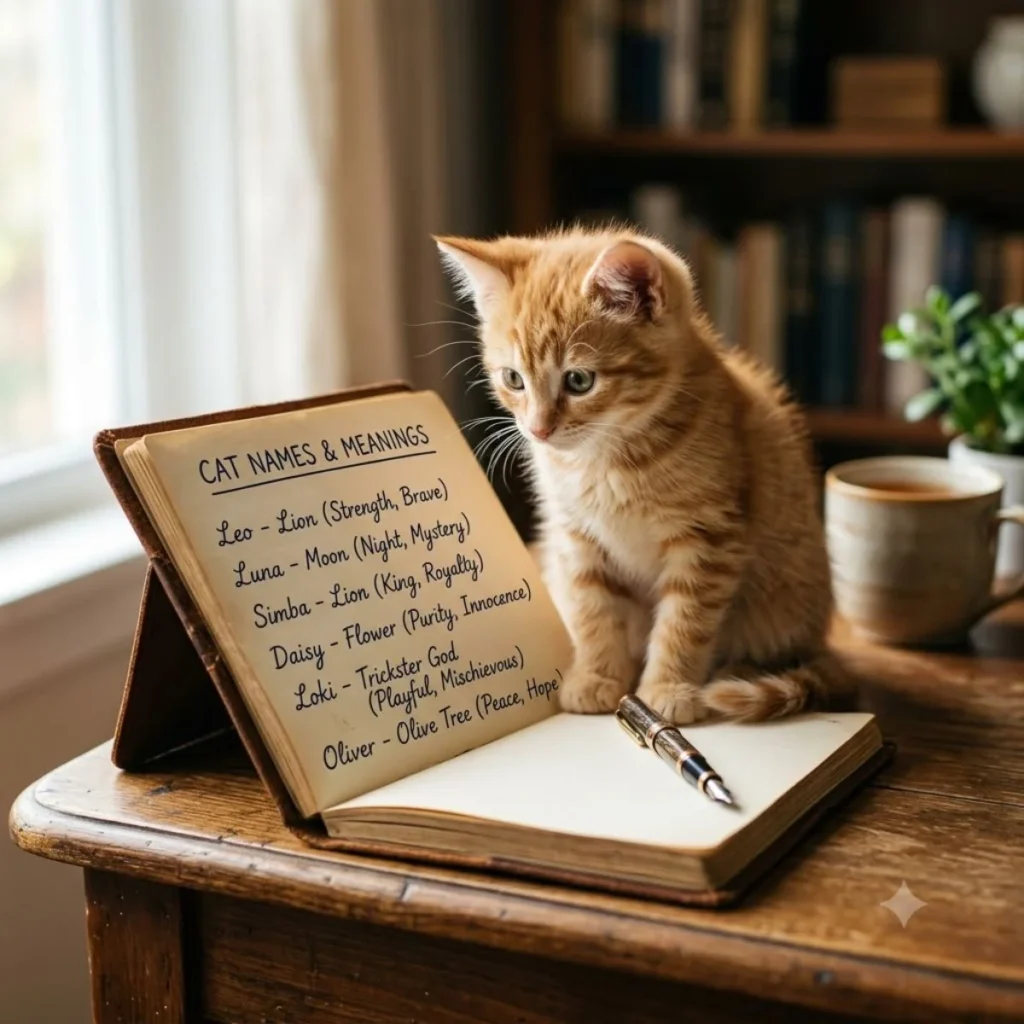 CAT NAMES & MEANINGS
Leo – Lion (Strength, Brave)
Luna – Moon (Night, Mystery)
Simba – Lion (King, Royalty)
Daisy – Flower (Purity, Innocence)
Loki – Trickster God
(Playful, Mischievous)
Oliver – Olive Tree (Peace, Hope)